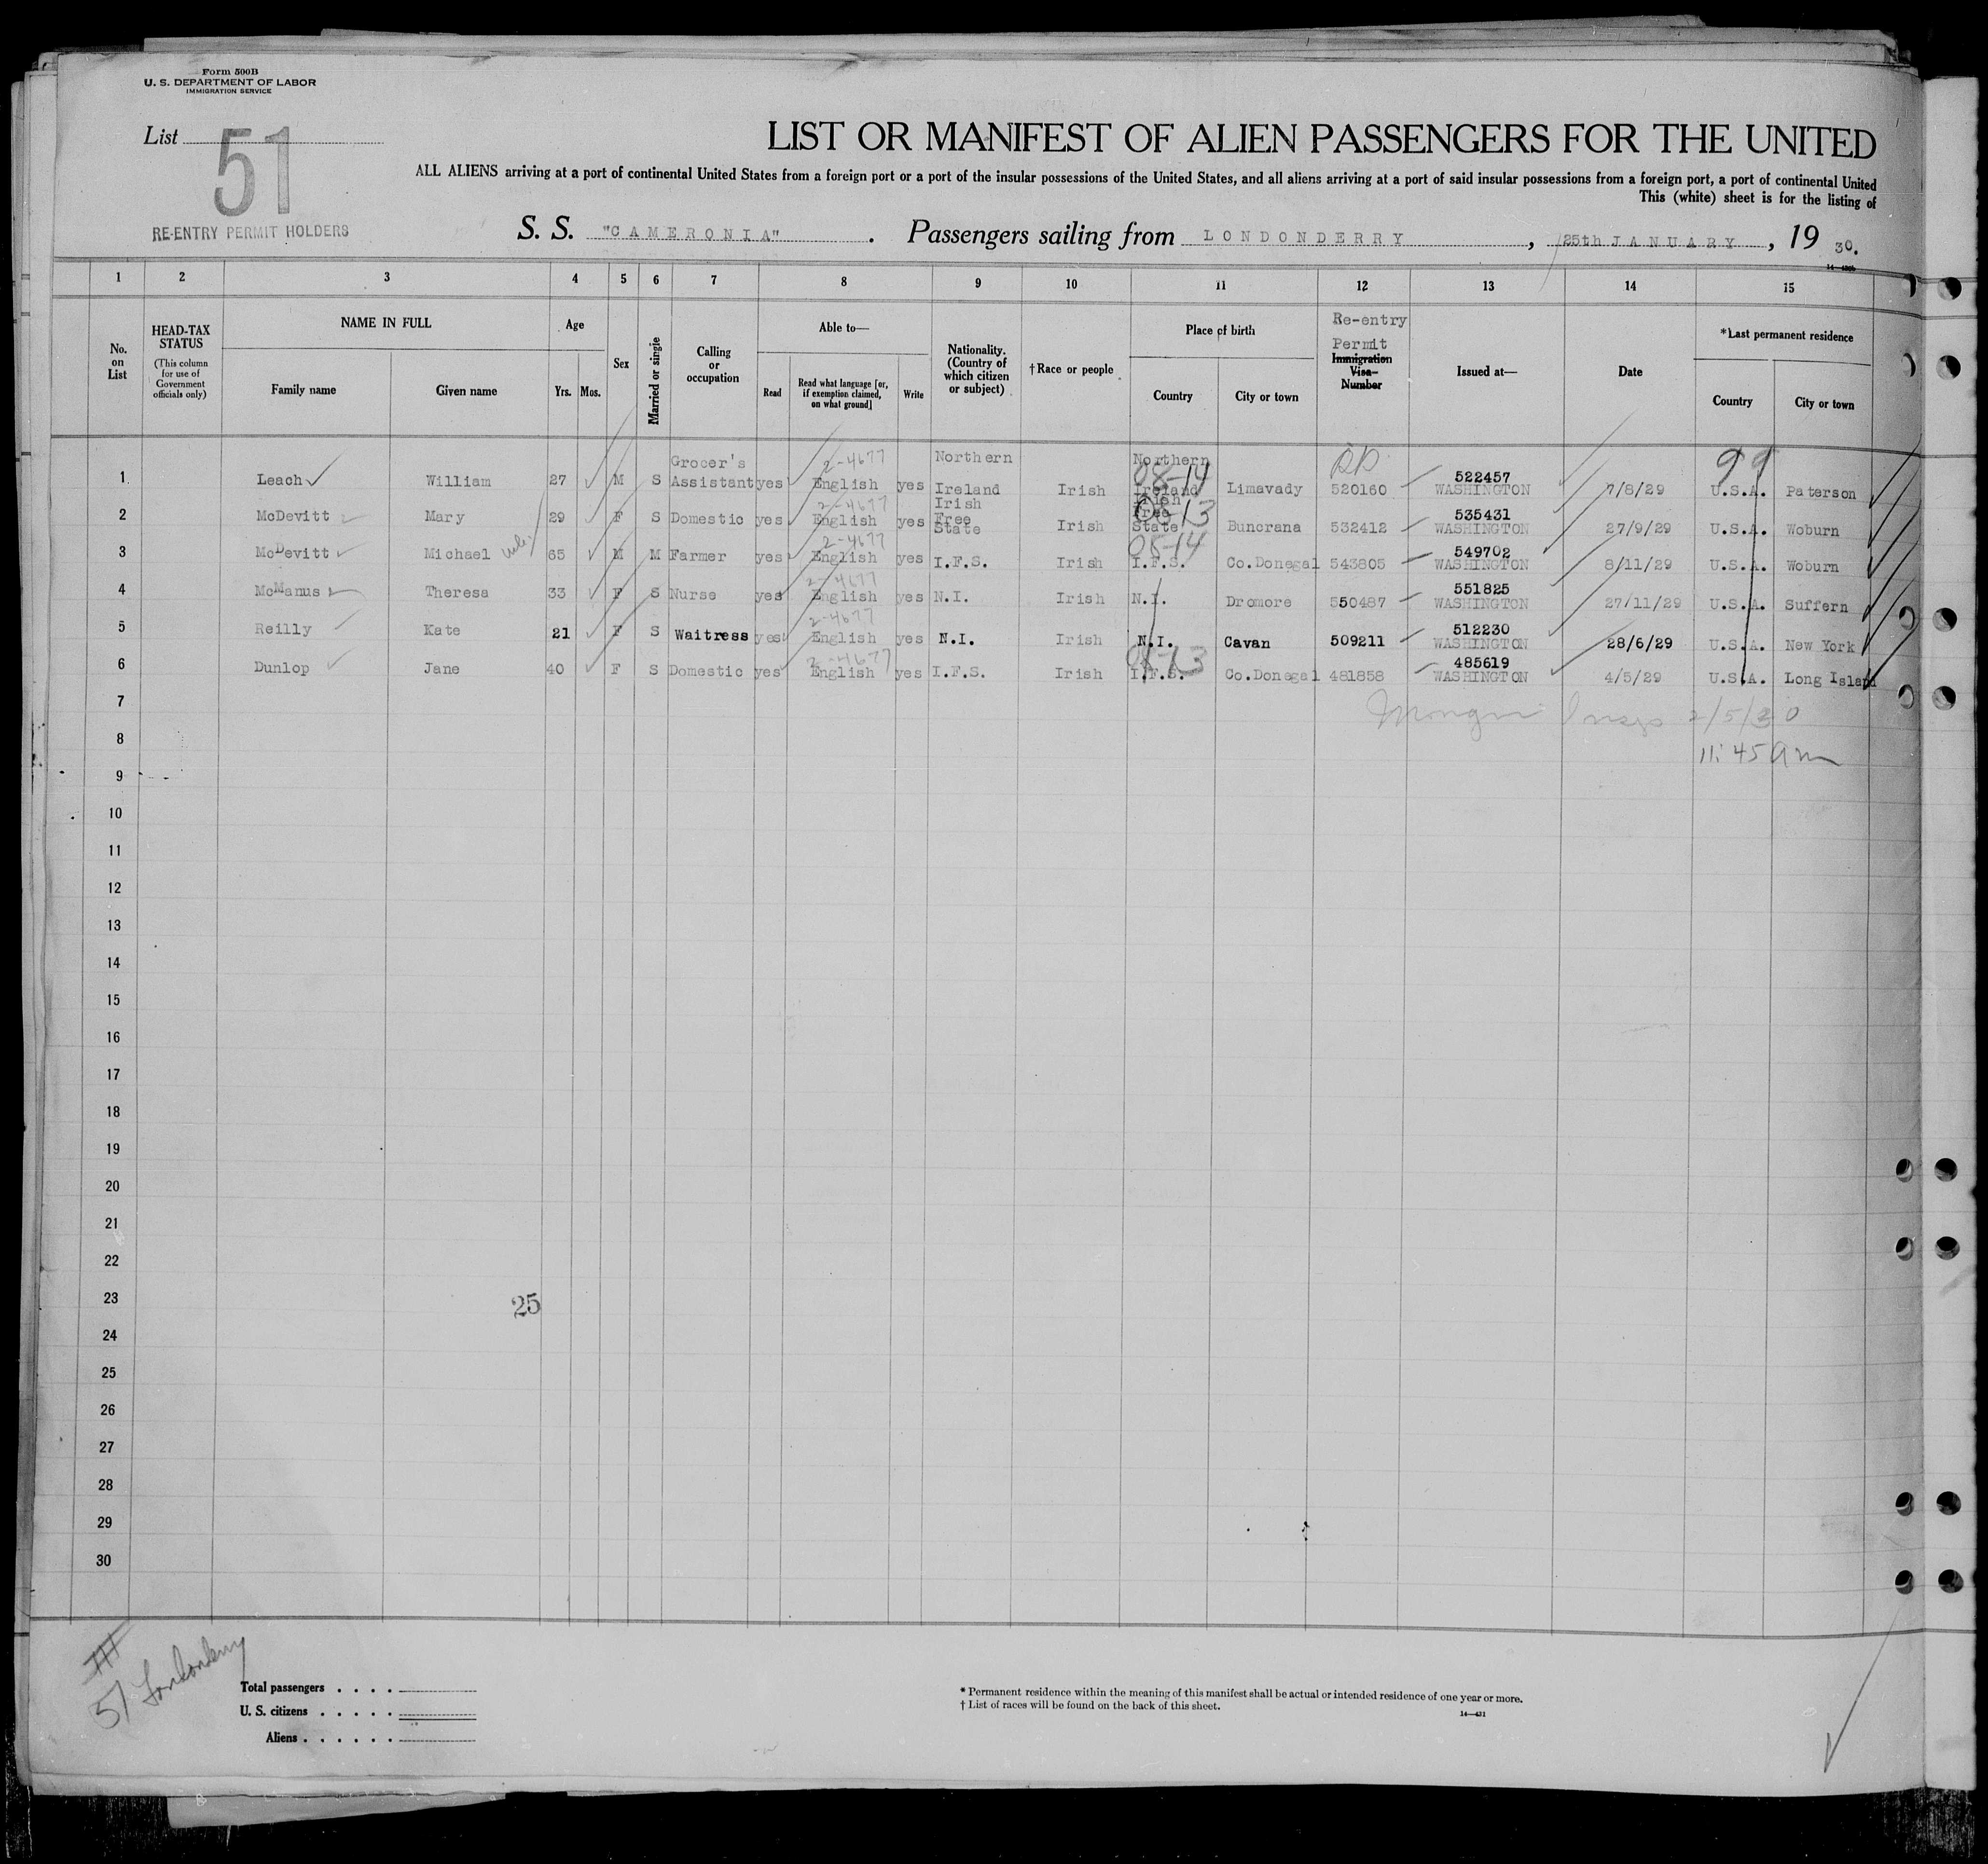 Form 500B
U. S. DEPARTMENT OF LABOR
IMMIGRATION SERVICE
List 51
RE-ENTRY PERMIT HOLDERS
LIST OR MANIFEST OF ALIEN PASSENGERS FOR THE UNITED
ALL ALIENS arriving at a port of continental United States from a foreign port or a port of the insular possessions of the United States, and all aliens arriving at a port of said insular possessions from a foreign port, a port of continental United
This (white) sheet is for the listing of
S. S. "CAMERONIA". Passengers sailing from LONDONDERRY, 25th JANUARY, 19 30.
1 2 3 4 5 6 7 8 9 10 11 12 13 14 15
No. on List
HEAD-TAX STATUS (This column for use of Government officials only)
NAME IN FULL Family name Given name
Age Yrs. Mos.
Sex
Married or single
Calling or occupation
Able to— Read Read what language [or, if exemption claimed, on what ground] Write
Nationality. (Country of which citizen or subject)
†Race or people
Place of birth Country City or town
Re-entry Permit Immigration Visa Number
Issued at—
Date
*Last permanent residence Country City or town
1 Leach William 27 M S Grocer's Assistant yes 2-4677 English yes Northern Ireland Irish 08-14 Northern Ireland Limavady 520160 522457 WASHINGTON 7/8/29 99 U.S.A. Paterson
2 McDevitt Mary 29 F S Domestic yes 2-4677 English yes Irish Free State Irish Irish Free State Buncrana 532412 535431 WASHINGTON 27/9/29 U.S.A. Woburn
3 McDevitt Michael 65 M M Farmer yes 2-4677 English yes I.F.S. Irish I.F.S. Co.Donegal 543805 549702 WASHINGTON 8/11/29 U.S.A. Woburn
4 McManus Theresa 33 F S Nurse yes 2-4677 English yes N.I. Irish N.I. Dromore 550487 551825 WASHINGTON 27/11/29 U.S.A. Suffern
5 Reilly Kate 21 F S Waitress yes 2-4677 English yes N.I. Irish N.I. Cavan 509211 512230 WASHINGTON 28/6/29 U.S.A. New York
6 Dunlop Jane 40 F S Domestic yes 2-4677 English yes I.F.S. Irish I.F.S. Co.Donegal 481858 485619 WASHINGTON 4/5/29 U.S.A. Long Island
7 2/5/30
8 11:45 am
9
10
11
12
13
14
15
16
17
18
19
20
21
22
23 25
24
25
26
27
28
29
30
51 Londonderry
Total passengers . . . .
U. S. citizens . . . . .
Aliens . . . . . .
* Permanent residence within the meaning of this manifest shall be actual or intended residence of one year or more.
† List of races will be found on the back of this sheet.
14—431